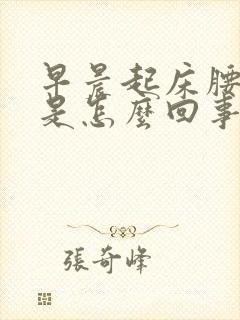 早晨起床腰
是怎麼回事
張奇峰